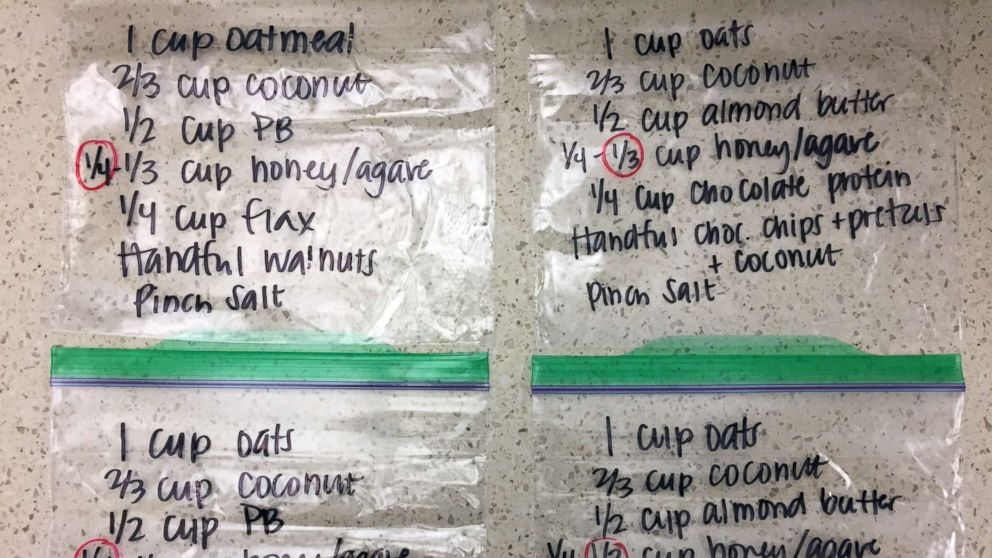 1 cup oatmeal
2/3 cup coconut
1/2 cup PB
1/4-1/3 cup honey/agave
1/4 cup flax
Handful walnuts
Pinch salt
1 cup oats
2/3 cup coconut
1/2 cup almond butter
1/4-1/3 cup honey/agave
1/4 cup chocolate protein
Handful choc chips + pretzels
+ coconut
Pinch salt
1 cup oats
2/3 cup coconut
1/2 cup PB
honey/agave
1 cup oats
2/3 cup coconut
1/2 cup almond butter
1/4-1/3 cup honey/agave